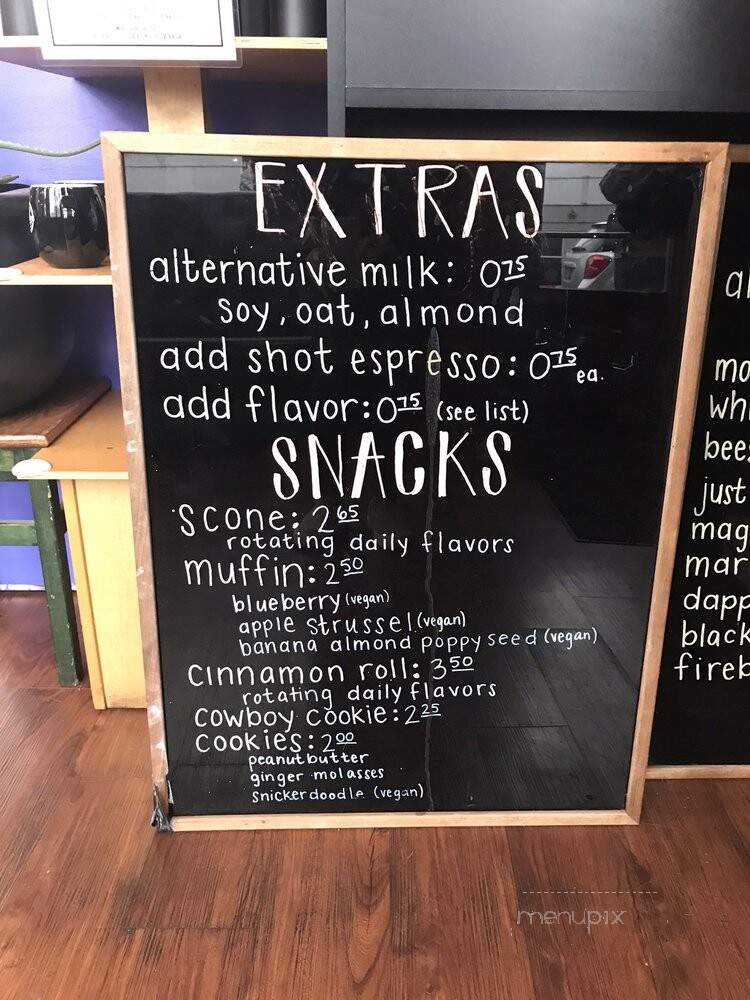 EXTRAS
alternative milk: 0.75
soy, oat, almond
add shot espresso: 0.75 ea.
add flavor: 0.75 (see list)
SNACKS
scone: 2.65
rotating daily flavors
muffin: 2.50
blueberry (vegan)
apple strussel (vegan)
banana almond poppyseed (vegan)
cinnamon roll: 3.50
rotating daily flavors
cowboy cookie: 2.25
cookies: 2.00
peanutbutter
ginger molasses
snickerdoodle (vegan)
mo
wh
bees
just
mag
mar
dapp
black
fireb
menupix